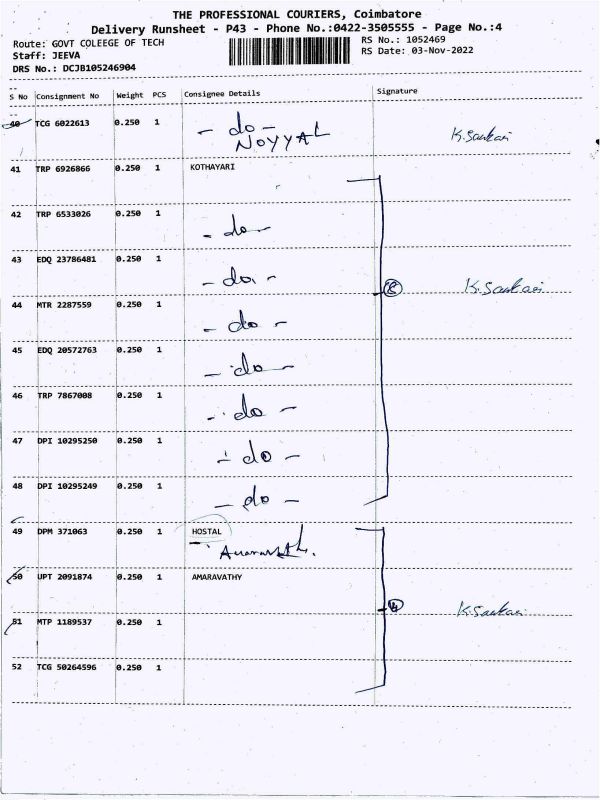 THE PROFESSIONAL COURIERS, Coimbatore
Delivery Runsheet - P43 - Phone No.:0422-3505555 - Page No.:4
Route: GOVT COLEEGE OF TECH
RS No.: 1052469
Staff: JEEVA
RS Date: 03-Nov-2022
DRS No.: DCJB105246904
S No Consignment No Weight PCS Consignee Details Signature
40 TCG 6022613 0.250 1 - do - K.Sankari
NOYYAL
41 TRP 6926866 0.250 1 KOTHAYARI
42 TRP 6533026 0.250 1 - do -
43 EDQ 23786481 0.250 1 - do - 8 K.Sankari
44 MTR 2287559 0.250 1 - do -
45 EDQ 20572763 0.250 1 - do -
46 TRP 7867008 0.250 1 - do -
47 DPI 10295250 0.250 1 - do -
48 DPI 10295249 0.250 1 - do -
49 DPM 371063 0.250 1 HOSTAL
50 UPT 2091874 0.250 1 AMARAVATHY
4 K.Sankari
51 MTP 1189537 0.250 1
52 TCG 50264596 0.250 1